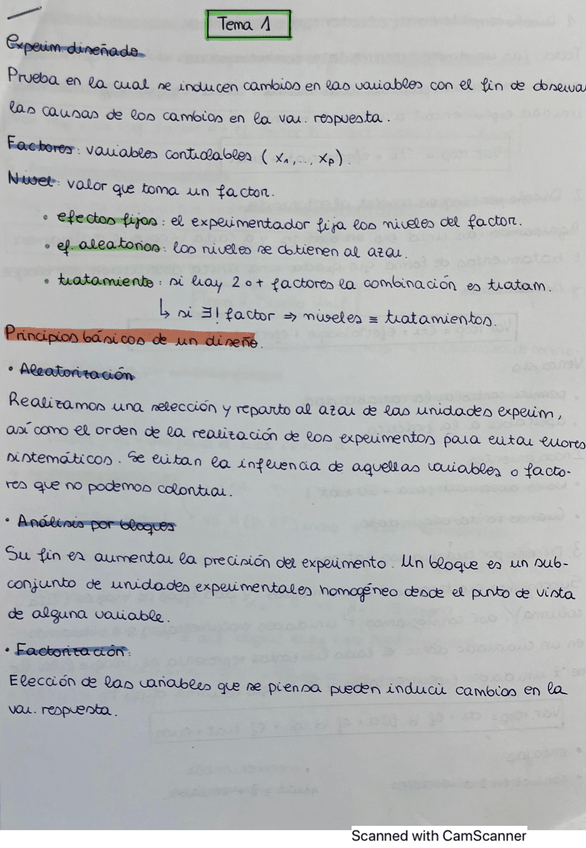 Tema 1
Experim. diseñado
Prueba en la cual se inducen cambios en las variables con el fin de observa
las causas de los cambios en la var. respuesta.
Factores: variables controlables (x₁,... xₚ).
Nivel: valor que toma un factor.
• efectos fijos: el experimentador fija los niveles del factor.
• ef. aleatorios: los niveles se obtienen al azar.
• tratamiento: si hay 2 o + factores la combinación es tratam.
↳ si ∃! factor ⇒ niveles ≡ tratamientos.
Principios básicos de un diseño.
• Aleatorización
Realizamos una selección y reparto al azar de las unidades experim,
así como el orden de la realización de los experimentos para evitar errores
sistemáticos. Se evitan la inferencia de aquellas variables o facto-
res que no podemos colontrar.
• Análisis por bloques
Su fin es aumentar la precisión del experimento. Un bloque es un sub-
conjunto de unidades experimentales homogéneo desde el punto de vista
de alguna variable.
• Factorización:
Elección de las variables que se piensa pueden inducir cambios en la
var. respuesta.
Scanned with CamScanner